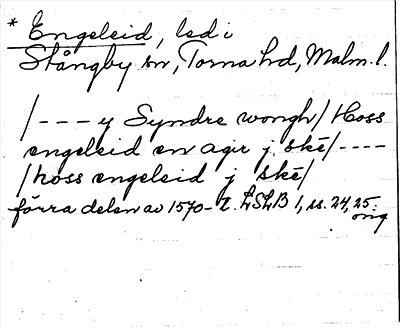 * Engeleid, led i
Stångby sn, Torna hd, Malm. l.
/--- y Syndre wongh / Hoss
engeleid en agir j skē/ ----
/hoss engeleid j skē/
förra delen av 1570-t. LSLB 1, ss. 24, 25.
orig